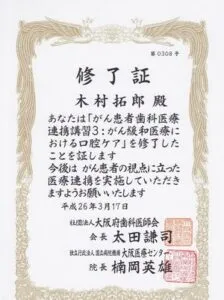 第0308号
修了証
木村拓郎 殿
あなたは「がん患者歯科医療
連携講習3：がん緩和医療に
おける口腔ケア」を修了した
ことを証します
今後は がん患者の視点に立った
医療連携を実施していただき
ますようお願いいたします
平成26年3月17日
社団法人大阪府歯科医師会
会長 太田謙司
独立行政法人 国立病院機構 大阪医療センター
院長 楠岡英雄